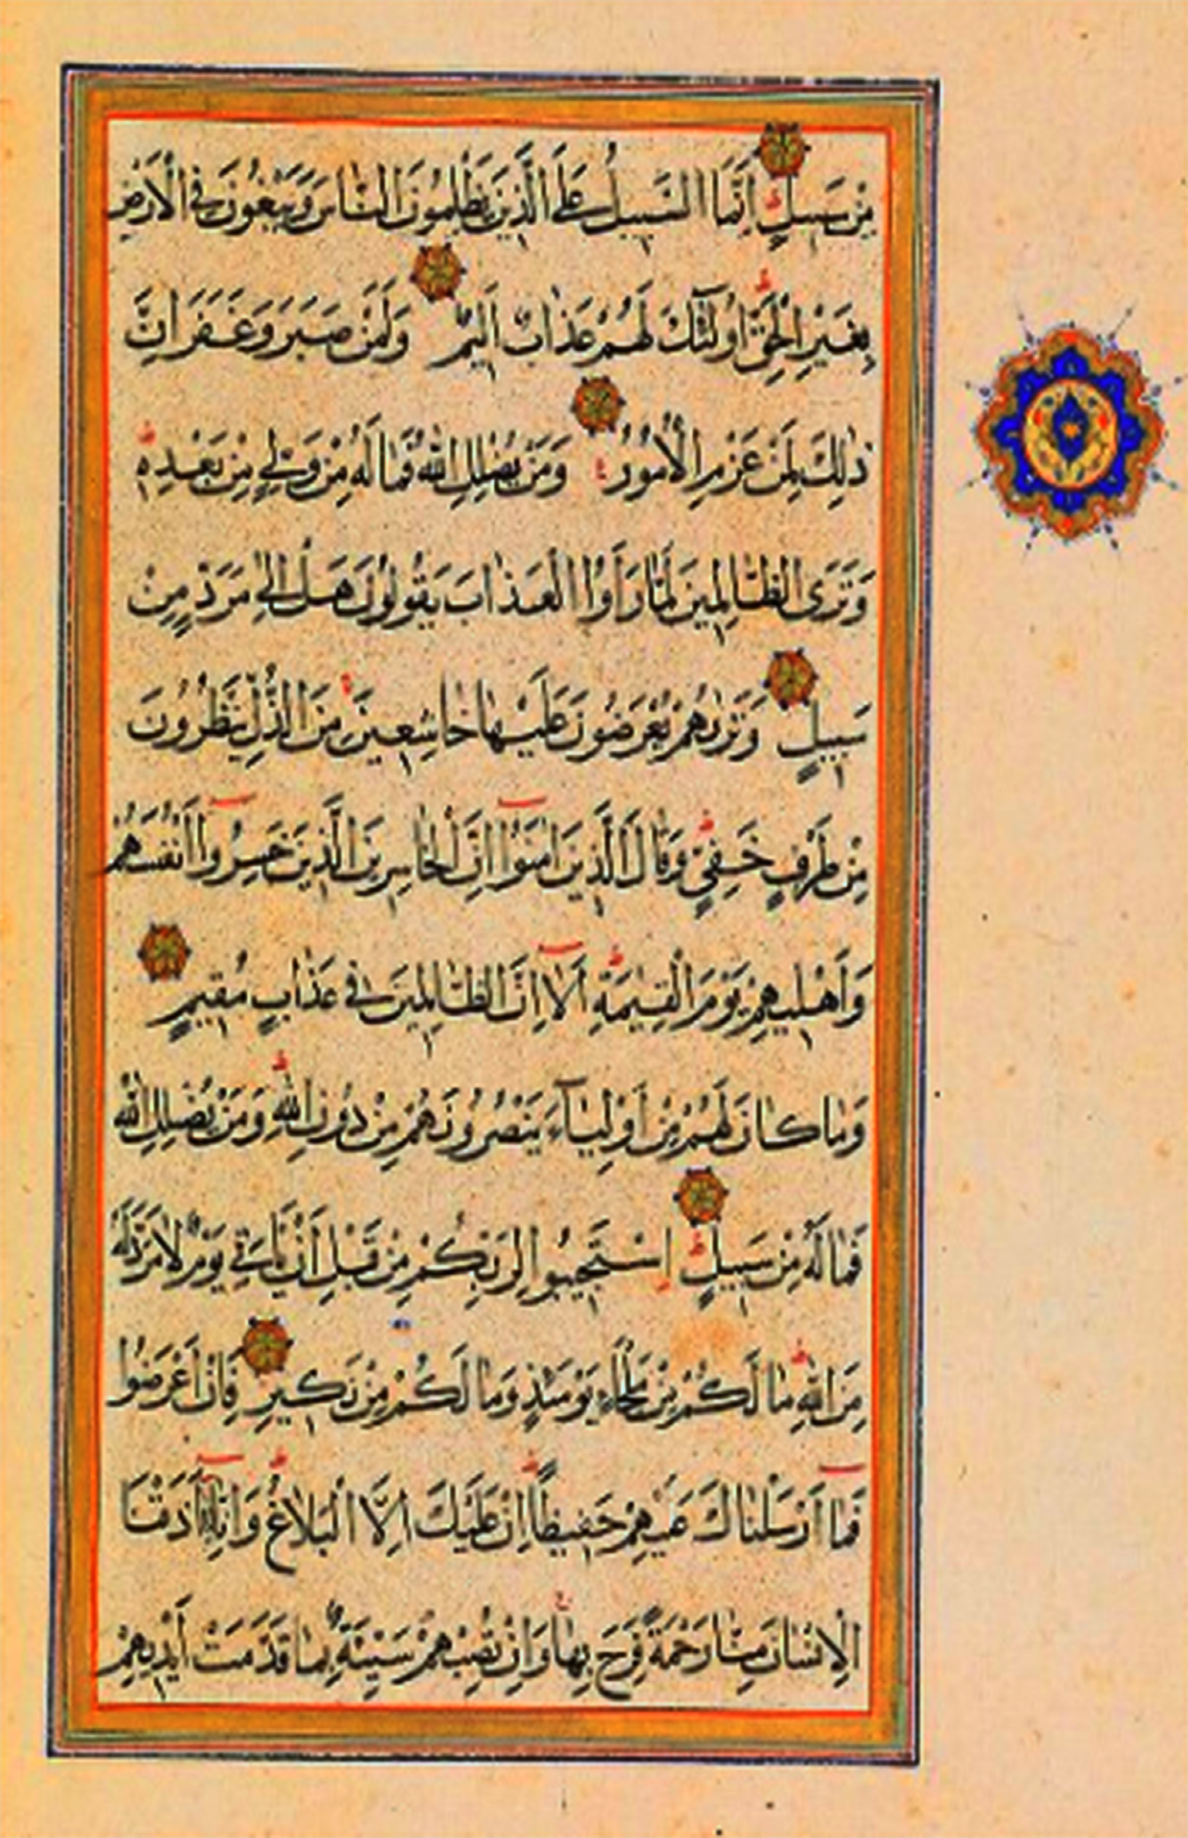 مِنْ سَبِيلٍ اِنَّمَا السَّبِيلُ عَلَى الَّذِينَ يَظْلِمُونَ النَّاسَ وَيَبْغُونَ فِي الْاَرْضِ
بِغَيْرِ الْحَقِّ اُولٰئِكَ لَهُمْ عَذَابٌ اَلِيمٌ وَلَمَنْ صَبَرَ وَغَفَرَ اِنَّ
ذٰلِكَ لَمِنْ عَزْمِ الْاُمُورِ وَمَنْ يُضْلِلِ اللّٰهُ فَمَا لَهُ مِنْ وَلِيٍّ مِنْ بَعْدِهِ
وَتَرَى الظَّالِمِينَ لَمَّا رَاَوُا الْعَذَابَ يَقُولُونَ هَلْ اِلٰى مَرَدٍّ مِنْ
سَبِيلٍ وَتَرٰيهُمْ يُعْرَضُونَ عَلَيْهَا خَاشِعِينَ مِنَ الذُّلِّ يَنْظُرُونَ
مِنْ طَرْفٍ خَفِيٍّ وَقَالَ الَّذِينَ اٰمَنُوا اِنَّ الْخَاسِرِينَ الَّذِينَ خَسِرُوا اَنْفُسَهُمْ
وَاَهْلِيهِمْ يَوْمَ الْقِيٰمَةِ اَلَا اِنَّ الظَّالِمِينَ فِي عَذَابٍ مُقِيمٍ
وَمَا كَانَ لَهُمْ مِنْ اَوْلِيَاءَ يَنْصُرُونَهُمْ مِنْ دُونِ اللّٰهِ وَمَنْ يُضْلِلِ اللّٰهُ
فَمَا لَهُ مِنْ سَبِيلٍ اِسْتَجِيبُوا لِرَبِّكُمْ مِنْ قَبْلِ اَنْ يَاْتِيَ يَوْمٌ لَا مَرَدَّ لَهُ
مِنَ اللّٰهِ مَا لَكُمْ مِنْ مَلْجَاٍ يَوْمَئِذٍ وَمَا لَكُمْ مِنْ نَكِيرٍ فَاِنْ اَعْرَضُوا
فَمَا اَرْسَلْنَاكَ عَلَيْهِمْ حَفِيظًا اِنْ عَلَيْكَ اِلَّا الْبَلَاغُ وَاِنَّا اِذَا اَذَقْنَا
الْاِنْسَانَ مِنَّا رَحْمَةً فَرِحَ بِهَا وَاِنْ تُصِبْهُمْ سَيِّئَةٌ بِمَا قَدَّمَتْ اَيْدِيهِمْ